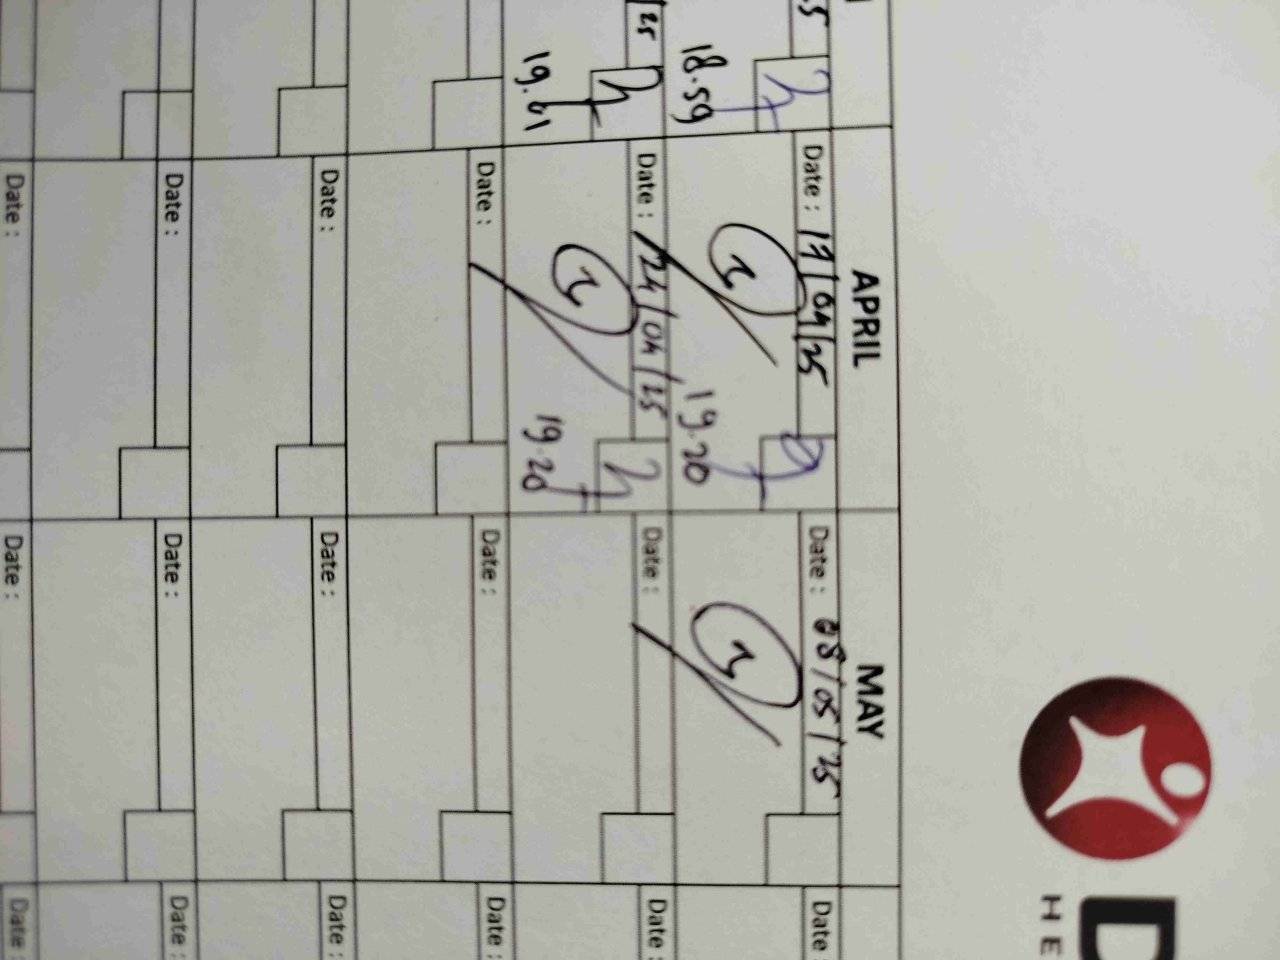 D
HE
APRIL
MAY
5
Date : 17/04/25
Date : 08/05/25
Date :
18.59
19.20
25
Date : 24/04/25
Date :
Date :
19.01
19.20
Date :
Date :
Date :
Date :
Date :
Date :
Date :
Date :
Date :
Date :
Date :
Date :